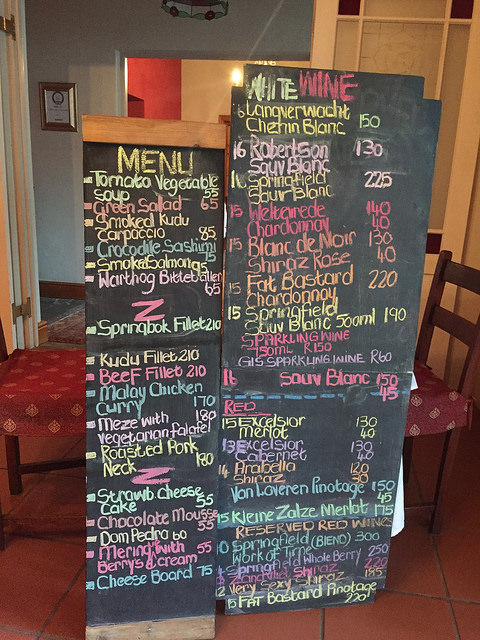 MENU
Tomato Vegetable
Soup 55
Green Sallad 65
Smoked Kudu
Carpaccio 85
Crocodile Sashimi
75
Smoke Salmon 95
Warthog Bitteballen
65
Z
Springbok Fillet 210
Kudu Fillet 210
BeeF Fillet 210
Malay Chicken
Curry 170
Meze with 180
Vegetarian Falafel
Roasted Pork
Neck 180
Z
Strawb. cheese
Cake 55
Chocolate Mousse
55
Dom Pedro 60
Mering with 55
Berry's & cream
Cheese Board 75
WHITE WINE
Langverwacht
Chenin Blanc 150
16 Robertson 130
Sauv Blanc
16 Springfield 225
Sauv Blanc
15 Weltevrede 140
Chardonnay 40
15 Blanc de Noir 130
Shiraz Rose 40
15 Fat Bastard 220
Chardonnay
15 Springfield
Sauv Blanc 500ml 190
SPARKLING WINE
750ML R150
GLS SPARKLING WINE R60
16 Sauv Blanc 150
45
RED
15 Excelsior 130
Merlot 40
13 Excelsior 130
Cabernet 40
14 Arabella 120
Shiraz 30
Van Loveren Pinotage 150
45
15 Kleine Zalze Merlot 175
RESERVED RED WINES
10 Springfield (BLEND) 300
Work of Time
Springfield Whole Berry 250
Shiraz 220
12 Very Sexy Shiraz 185
15 FAT Bastard Pinotage
220